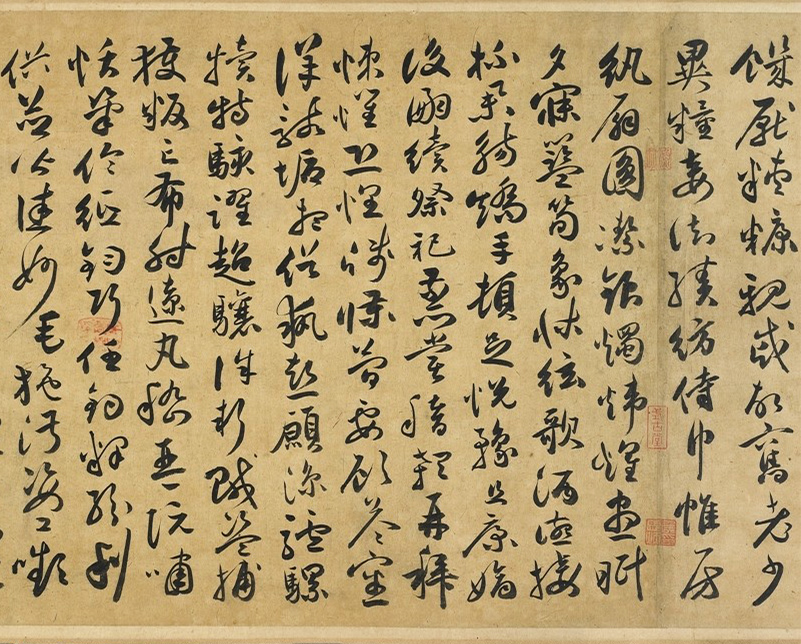 饑厭糟糠親戚故舊老少
異糧妾御績紡侍巾帷房
紈扇圓潔銀燭煒煌晝眠
夕寐籃筍象床絃歌酒讌接
杯舉觴矯手頓足悅豫且康嫡
後嗣續祭祀蒸嘗稽顙再拜
悚懼恐惶箋牒簡要顧答審
詳骸垢想浴執熱願涼驢騾
犢特駭躍超驤誅斬賊盜捕
獲叛亡布射遼丸嵇琴阮嘯
恬筆倫紙鈞巧任釣釋紛利
俗並皆佳妙毛施淑姿工顰